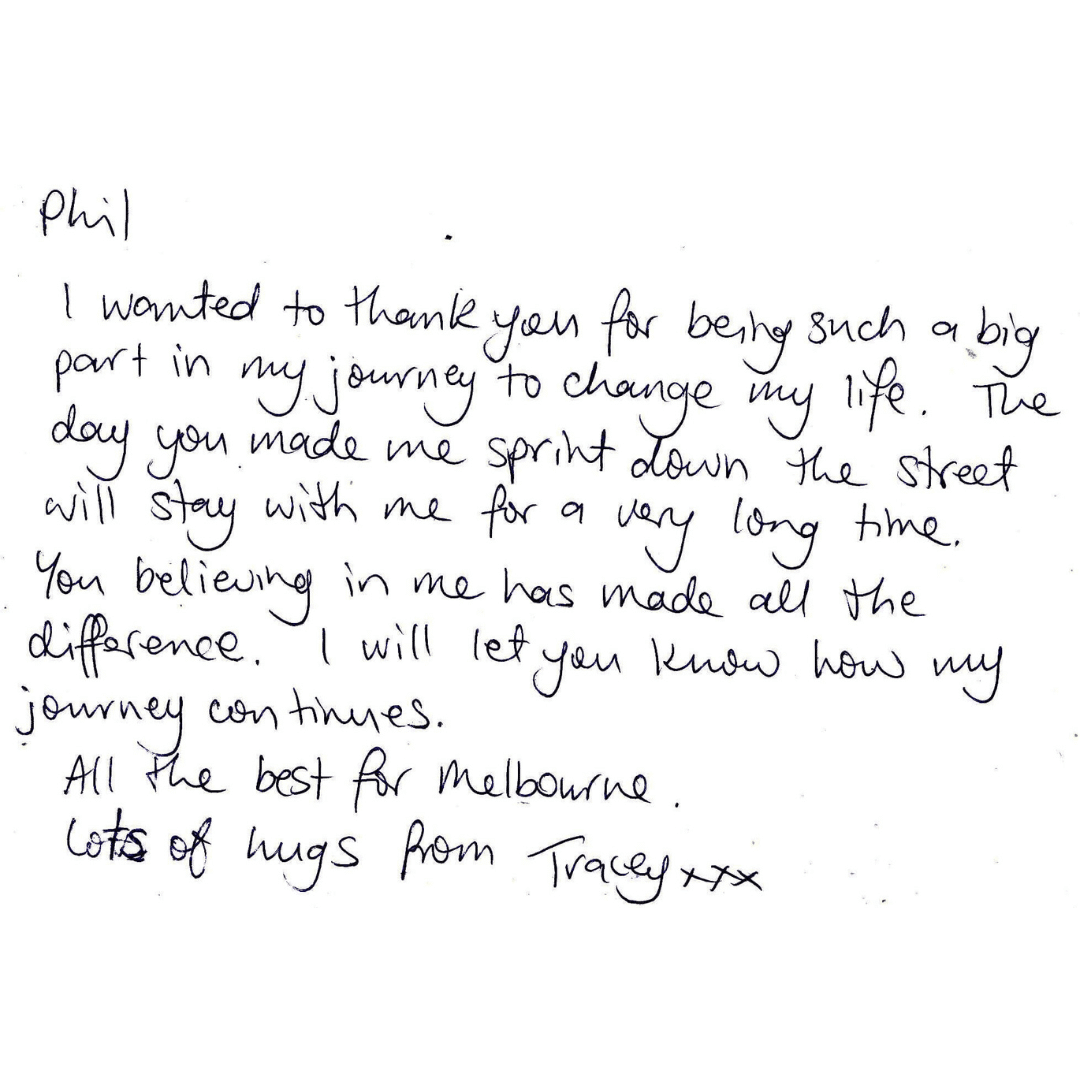 Phil
I wanted to thank you for being such a big
part in my journey to change my life. The
day you made me sprint down the street
will stay with me for a very long time.
You believing in me has made all the
difference. I will let you know how my
journey continues.
All the best for Melbourne.
Lots of hugs from Tracey xxx